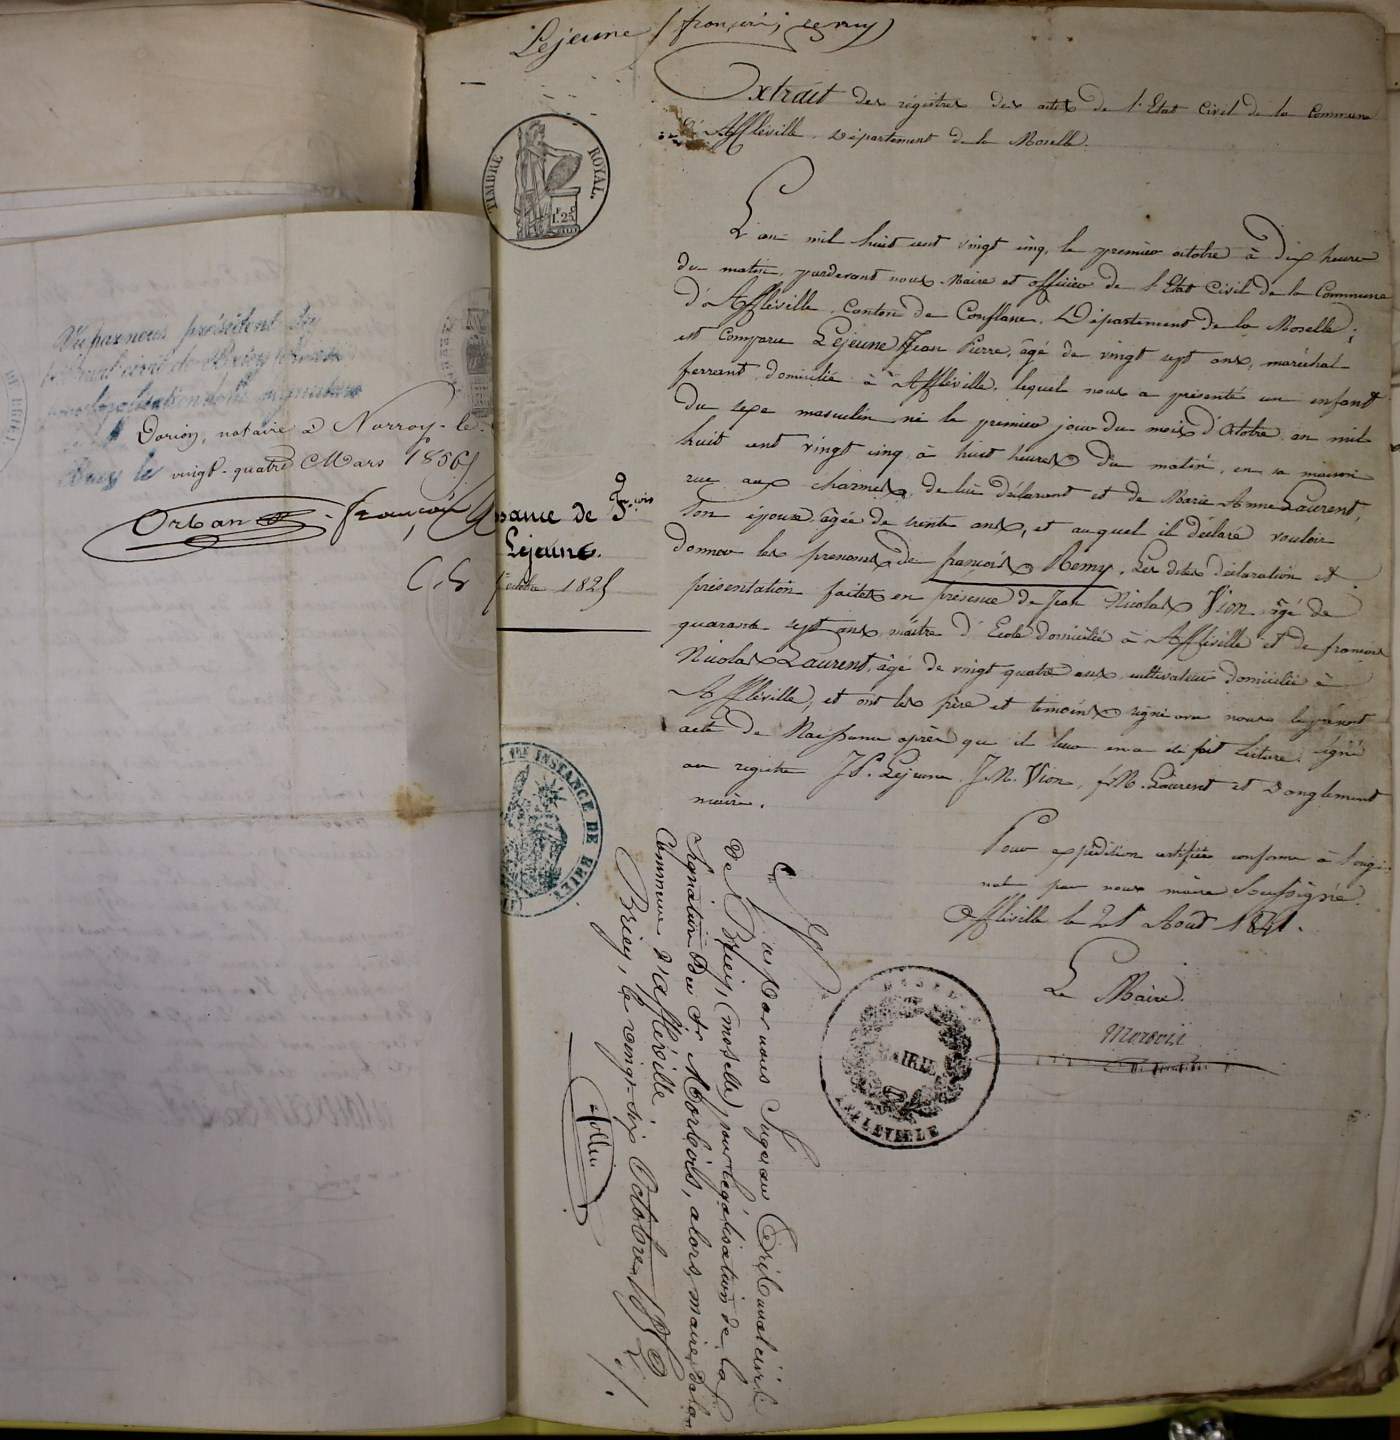 Lejeune (françois, remy)
Extrait des régistres des actes de l'Etat Civil de la Commune
d'Affléville, Département de la Moselle.
TIMBRE ROYAL.
1.25
L'an mil huit cent vingt cinq, le premier octobre à Dix heure
du matin, pardevant nous Maire et officier de l'Etat Civil de la Commune
d'Affléville, Canton de Conflans, Département de la Moselle;
est Comparu Lejeune Jean Pierre, âgé de vingt sept ans, maréchal
ferrant domicilié à Affléville, lequel nous a présenté un enfant
du sexe masculin né le premier jour du mois d'Octobre an mil
huit cent vingt cinq à huit heures du matin, en sa maison
rue aux charmes, de lui déclarant et de Marie Anne Laurent,
son épouse âgée de trente ans, et auquel il déclare vouloir
donner les prenoms de françois Remy. Les dites déclaration et
présentation faites en présence de Jean Nicolas Vion âgé de
quarante sept ans, maître d'Ecole domicilié à Affléville et de françois
Nicolas Laurent, âgé de vingt quatre ans cultivateur domicilié à
Affléville, et ont les père et témoins signé avec nous le présent
acte de Naissance après que il leur en a été fait lecture. signé
au registre J.P. Lejeune, J.N. Vion, f.N. Laurent et Donglement
maire.
Pour expédition certifiée conforme à l'origi-
nal par nous maire Soussigné.
Affléville le 21 Août 1841.
Le Maire.
MAIRIE
AFFLEVILLE
Vu par nous Juge au Tribunal civil
de Briey, (moselle) pour légalisation de la
signature du Sr Morbois, alors, maire de la
Commune d'affléville
Briey, le vingt-six Octobre
Collin
ssance de Fçois
Lejeune.
1er octobre 1825
1RE INSTANCE DE BRIEY
Vu par nous président du
tribunal civil de Briey
pour légalisation de la signature
Dorion, notaire à Norroy-le-
Briey le vingt-quatre Mars 1856
Orban françois